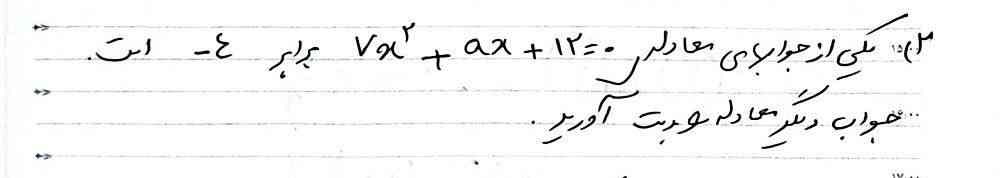 ۳) یکی از جوابهای معادله ۷x² + ax + ۱۲ = ۰ برابر ۴- است.
جواب دیگر معادله را بدست آورید.